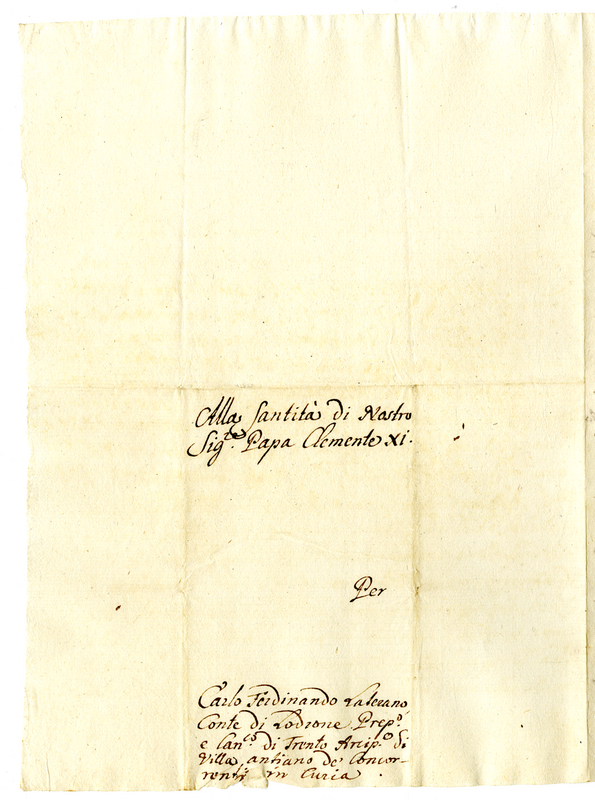 Alla Santità di Nostro
Sig.re Papa Clemente XI.
Per
Carlo Ferdinando Laterano
Conte di Lodrone, Prep.o
e Can.co di Trento Arcip.o di
Villa, antiano de Concor-
renti in Curia.